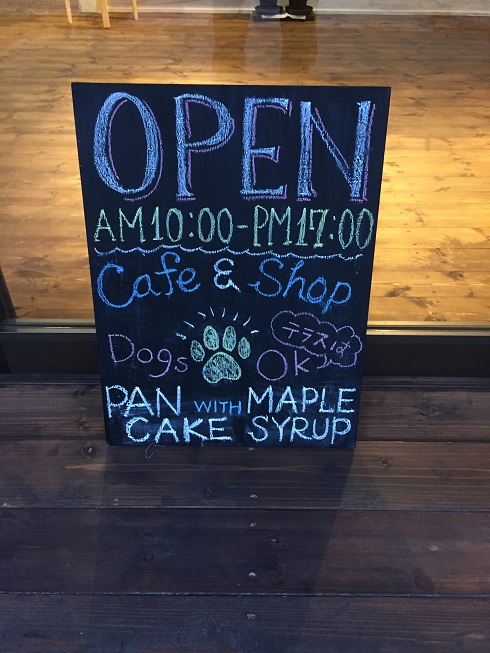 OPEN
AM10:00-PM17:00
Cafe & Shop
テラスは
Dogs OK
PAN WITH MAPLE
CAKE SYRUP